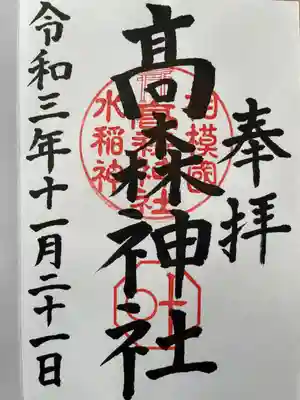 奉拝
相模國
髙森神社
水稲神
令和三年十一月二十一日